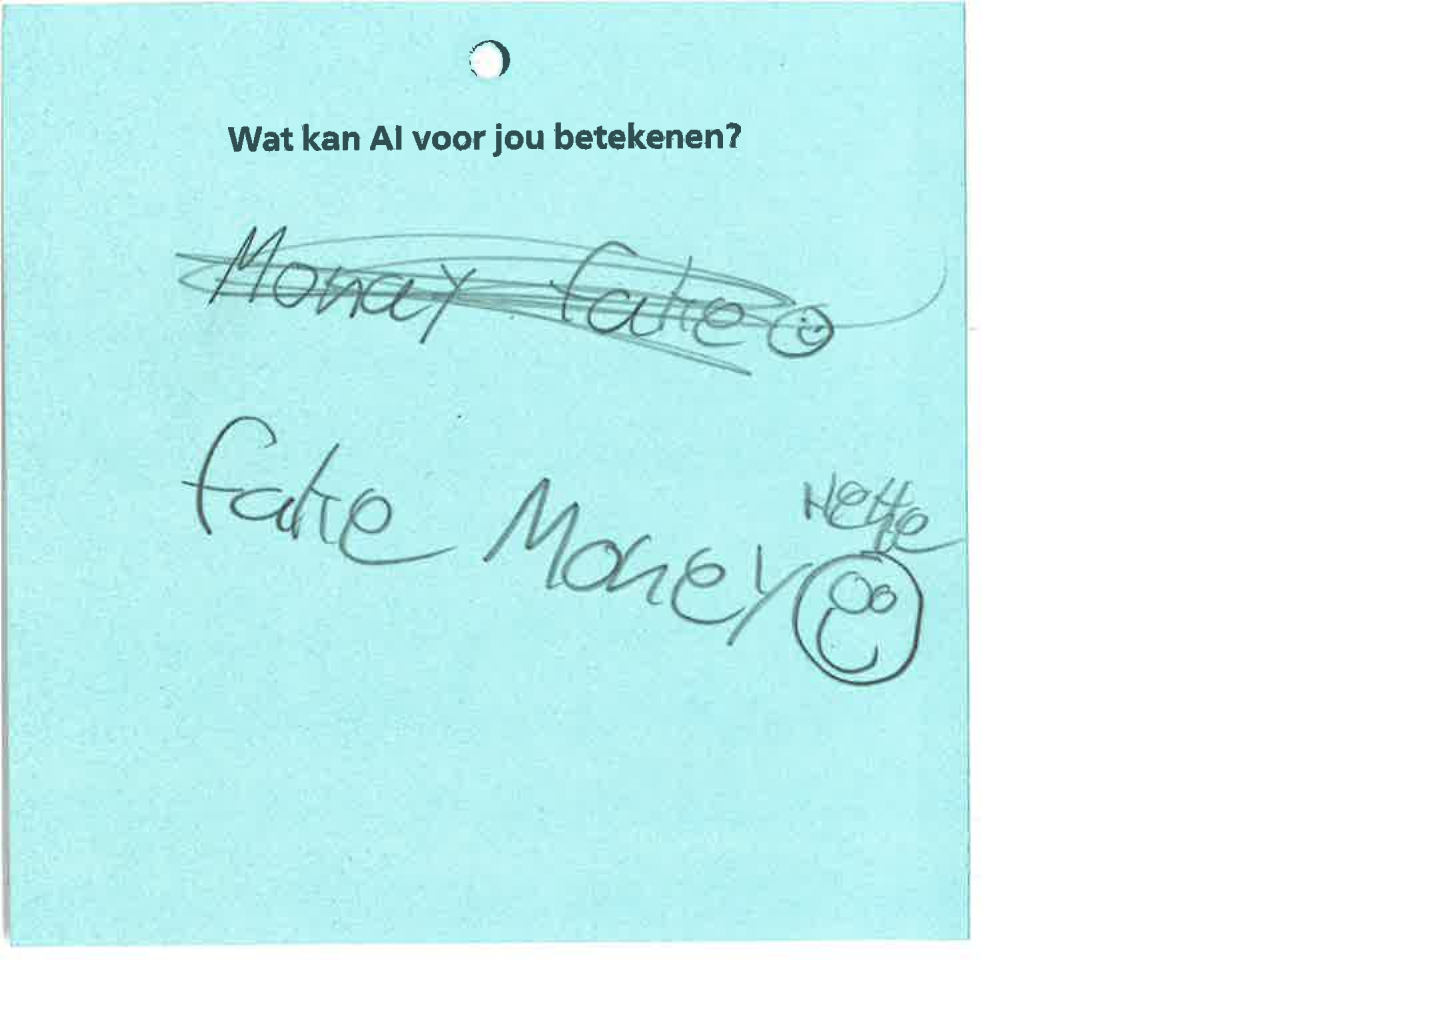 Wat kan AI voor jou betekenen?
Monay fake
fake Money